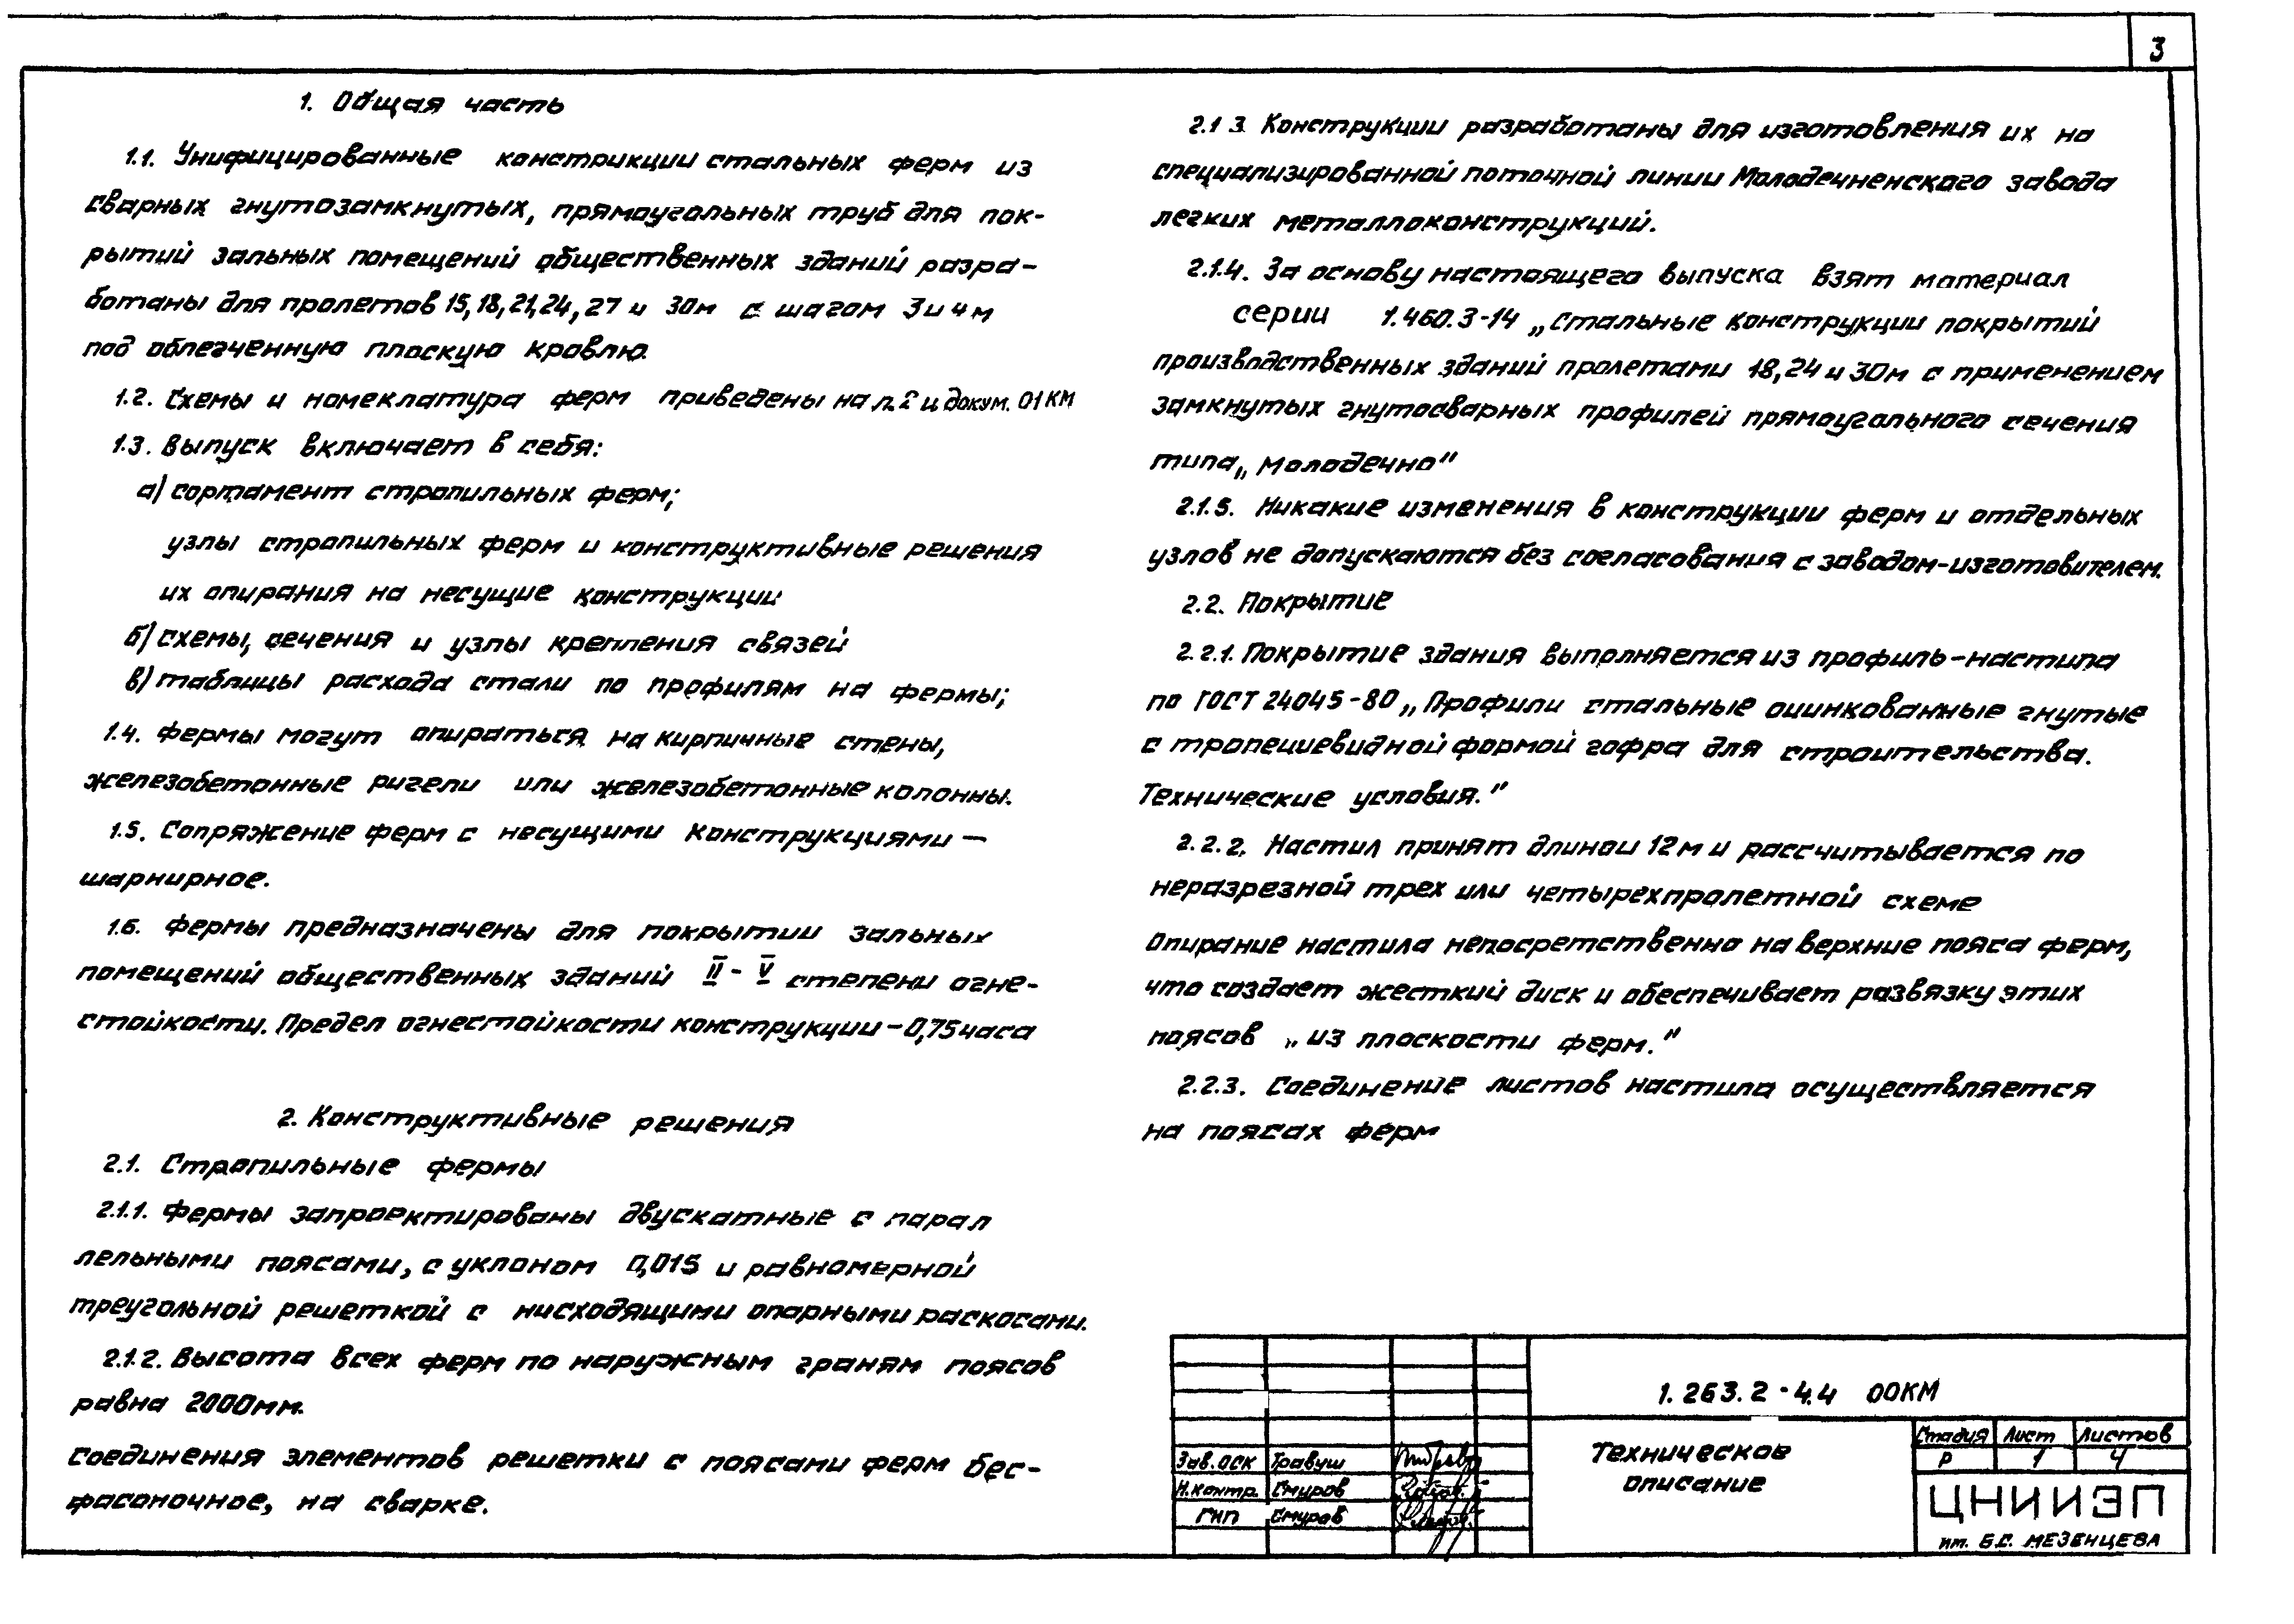 3
1. Общая часть
1.1. Унифицированные конструкции стальных ферм из
сварных гнутозамкнутых, прямоугольных труб для пок-
рытий зальных помещений общественных зданий разра-
ботаны для пролетов 15,18,21,24,27 и 30м с шагом 3 и 4 м
под облегченную плоскую кровлю.
1.2. Схемы и номеклатура ферм приведены на л.2 и докум. 01КМ
1.3. Выпуск включает в себя:
а) сортамент стропильных ферм;
узлы стропильных ферм и конструктивные решения
их опирания на несущие конструкции
б) схемы, сечения и узлы крепления связей
в) таблицы расхода стали по профилям на фермы;
1.4. Фермы могут опираться на кирпичные стены,
железобетонные ригели или железобетонные колонны.
1.5. Сопряжение ферм с несущими конструкциями —
шарнирное.
1.6. Фермы предназначены для покрытии зальных
помещений общественных зданий II - V степени огне-
стойкости. Предел огнестойкости конструкции – 0,75 часа
2. Конструктивные решения
2.1. Стропильные фермы
2.1.1. Фермы запроектированы двускатные с парал
лельными поясами, с уклоном 0,015 и равномерной
треугольной решеткой с нисходящими опорными раскосами.
2.1.2. Высота всех ферм по наружным граням поясов
равна 2000мм.
Соединения элементов решетки с поясами ферм бес-
фасоночное, на сварке.
2.1 3. Конструкции разработаны для изготовления их на
специализированной поточной линии Молодечненского завода
легких металлоконструкций.
2.1.4. За основу настоящего выпуска взят материал
серии 1.460.3-14 „Стальные конструкции покрытий
производственных зданий пролетами 18,24 и 30м с применением
замкнутых гнутосварных профилей прямоугольного сечения
типа „Молодечно"
2.1.5. Никакие изменения в конструкции ферм и отдельных
узлов не допускаются без согласования с заводом-изготовителем.
2.2. Покрытие
2.2.1. Покрытие здания выполняется из профиль-настила
по ГОСТ 24045-80 „Профили стальные оцинкованные гнутые
с трапециевидной формой гофра для строительства.
Технические условия."
2.2.2. Настил принят длинои 12м и рассчитывается по
неразрезной трех или четырехпролетной схеме
Опирание настила непосретственно на верхние пояса ферм,
что создает жесткий диск и обеспечивает развязку этих
поясов „из плоскости ферм."
2.2.3. Соединение листов настила осуществляется
на поясах ферм
1. 263. 2 - 4.4 00КМ
Зав. ОСК Травуш
Н. контр. Смуров
ГИП Смуров
Техническое
описание
Стадия Лист Листов
Р 1 4
ЦНИИЭП
им. Б.С. МЕЗЕНЦЕВА